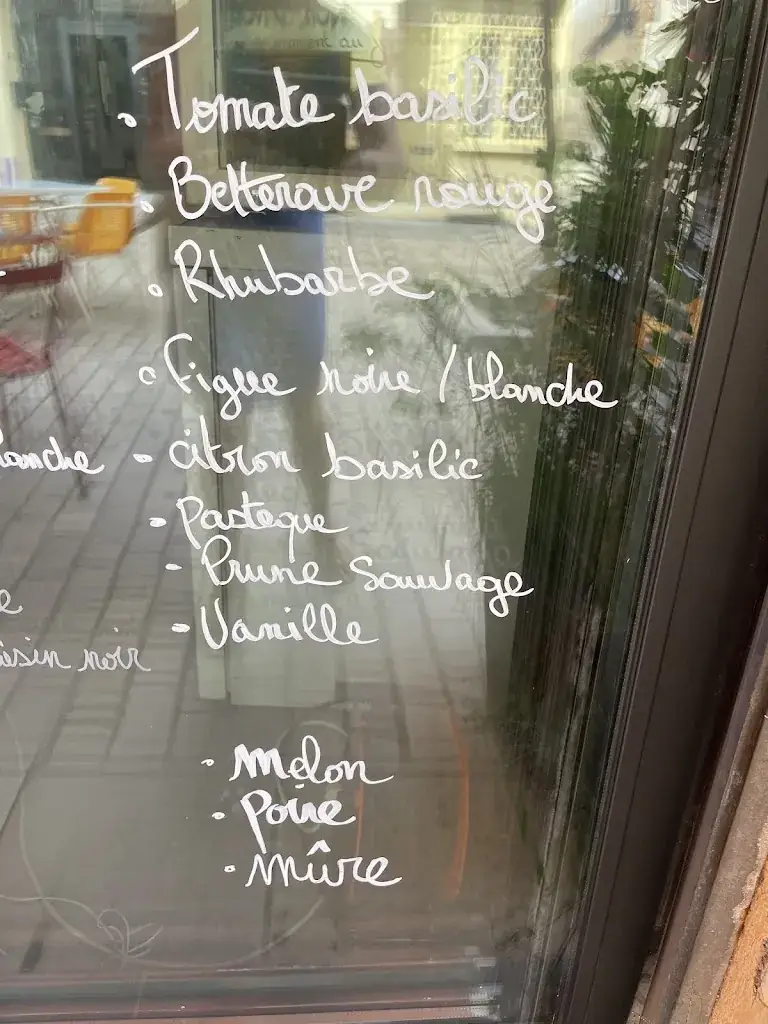 • Tomate basilic
• Betterave rouge
• Rhubarbe
• figue noire / blanche
lanche - citron basilic
- Pasteque
- Prune Sauvage
e
- Vanille
isin noir
• melon
• Poire
• mûre